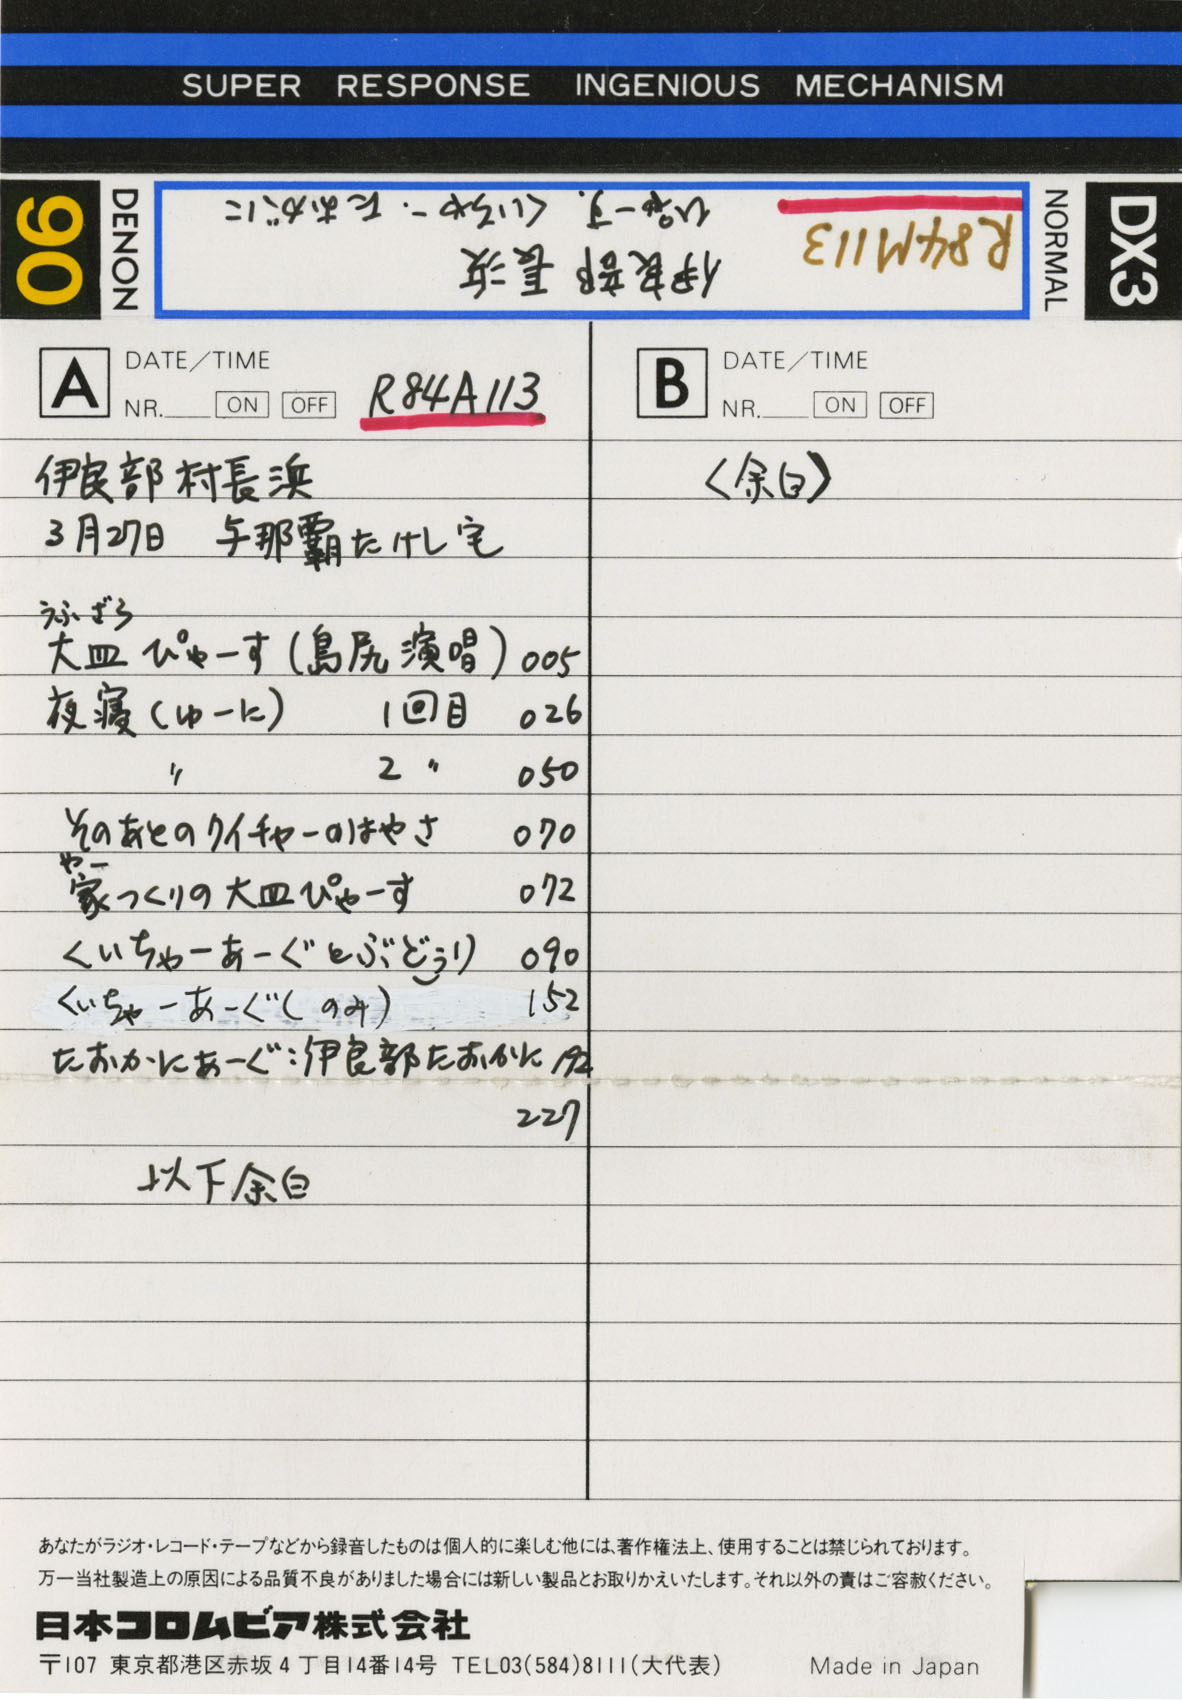 SUPER RESPONSE INGENIOUS MECHANISM
90
DENON
R84M113
伊良部 長浜
ぴゃーす. くいちゃー. たおがに
NORMAL
DX3
A DATE/TIME
NR. ON OFF
R84A113
伊良部村長浜
3月27日 与那覇たけし宅
うふざら
大皿ぴゃーす(島尻演唱) 005
夜寝(ゆーに) 1回目 026
〃 2〃 050
そのあとのクイチャーのはやさ 070
やー
家つくりの大皿ぴゃーす 072
くいちゃーあーぐとぶどぅり 090
くいちゃーあーぐ(のみ) 152
たおかにあーぐ:伊良部たおかに 192
227
以下余白
B DATE/TIME
NR. ON OFF
〈余白〉
あなたがラジオ・レコード・テープなどから録音したものは個人的に楽しむ他には、著作権法上、使用することは禁じられております。
万一当社製造上の原因による品質不良がありました場合には新しい製品とお取りかえいたします。それ以外の責はご容赦ください。
日本コロムビア株式会社
〒107 東京都港区赤坂4丁目14番14号 TEL03(584)8111(大代表)
Made in Japan